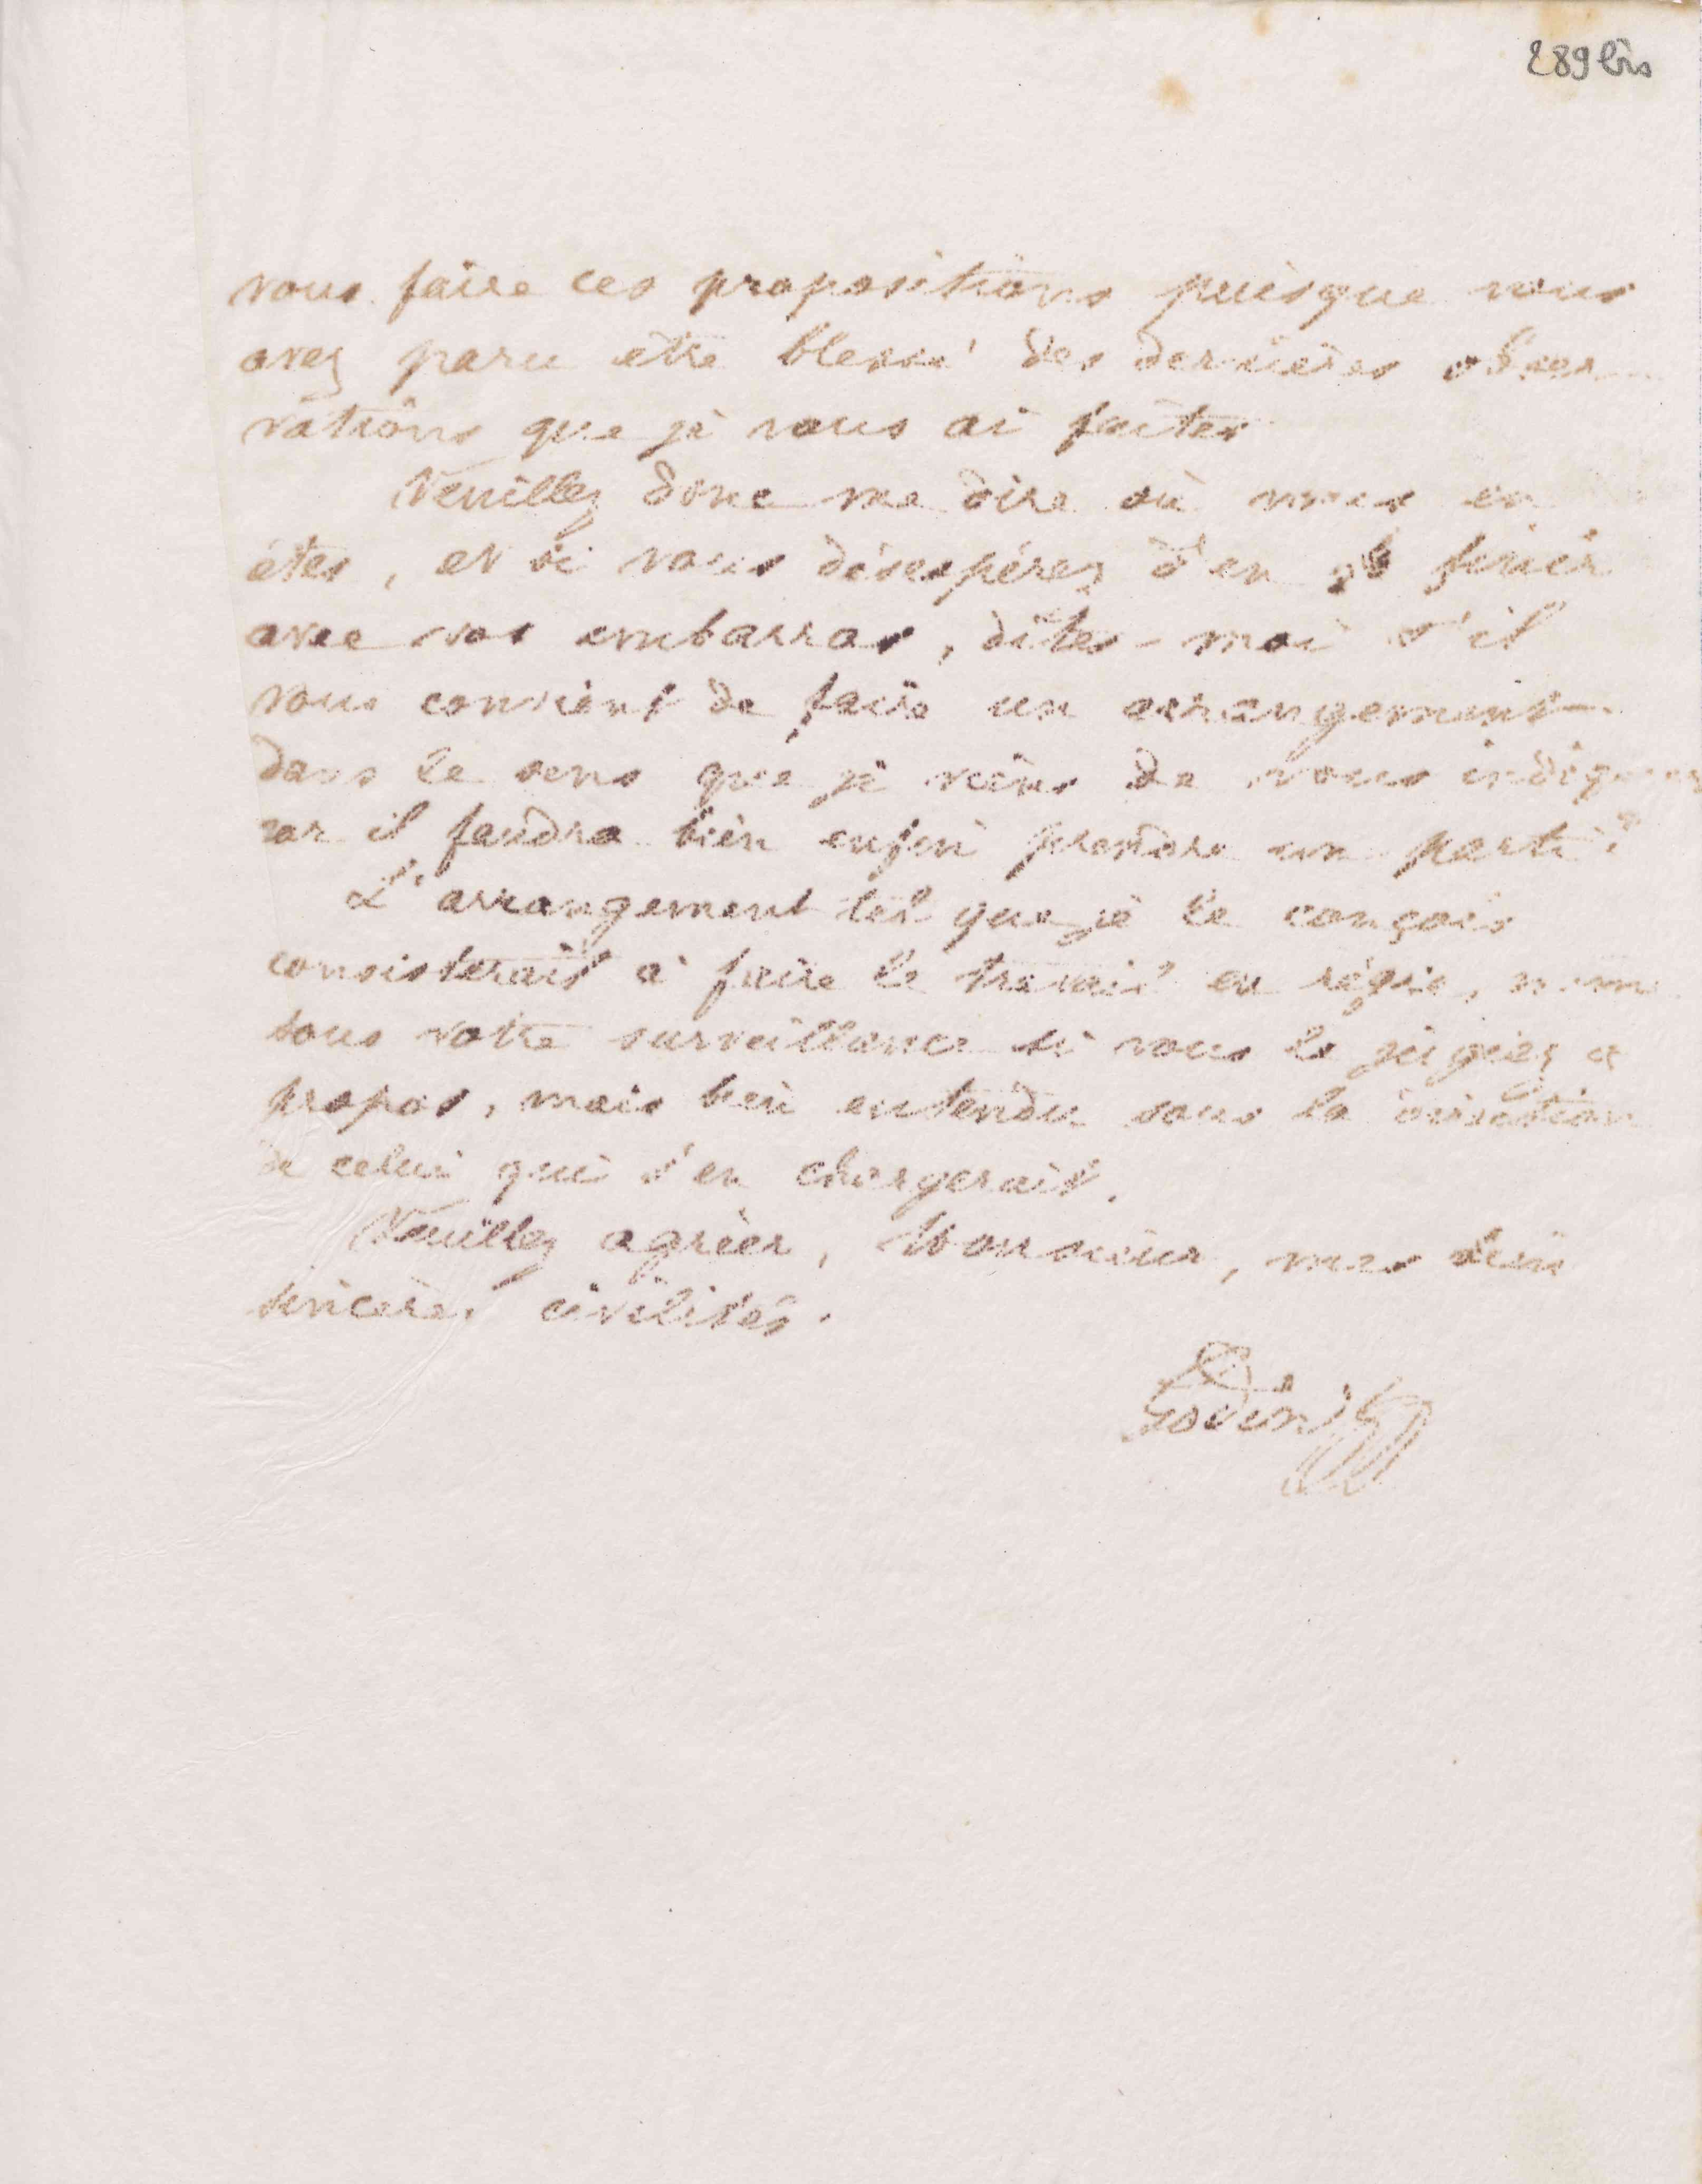 289 bis
vous faire ces propositions puisque vous
avez paru être blessé des dernières obser-
vations que je vous ai faites
Veuillez donc me dire où vous en
êtes, et si vous désespérez d'en finir
avec vos embarras, dites-moi s'il
vous convient de faire un arrangement
dans le sens que je viens de vous indiquer
car il faudra bien enfin prendre un parti?
L'arrangement tel que je le conçois
consisterait à faire le travail en régie, même
sous votre surveillance si vous le jugiez à
propos, mais bien entendu sous la direction
de celui qui s'en chargerait.
Veuillez agréer, Monsieur, mes bien
sincères civilités.
Godin